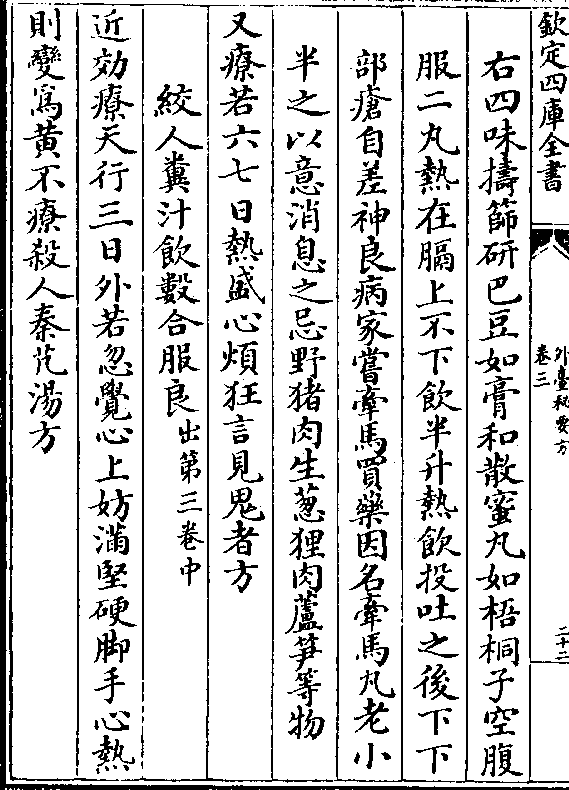 欽定四庫全書
外臺秘要方
卷三
二十二
右四味擣篩研巴豆如膏和散蜜丸如梧桐子空腹
服二丸熱在膈上不下飲半升熱飲投吐之後下下
部瘡自差神良病家嘗牽馬買藥因名牽馬丸老小
半之以意消息之忌野猪肉生葱狸肉蘆笋等物
又療若六七日熱盛心煩狂言見鬼者方
絞人糞汁飲數合服良出第三卷中
近効療天行三日外若忽覺心上妨滿堅硬脚手心熱
則變為黃不療殺人秦艽湯方